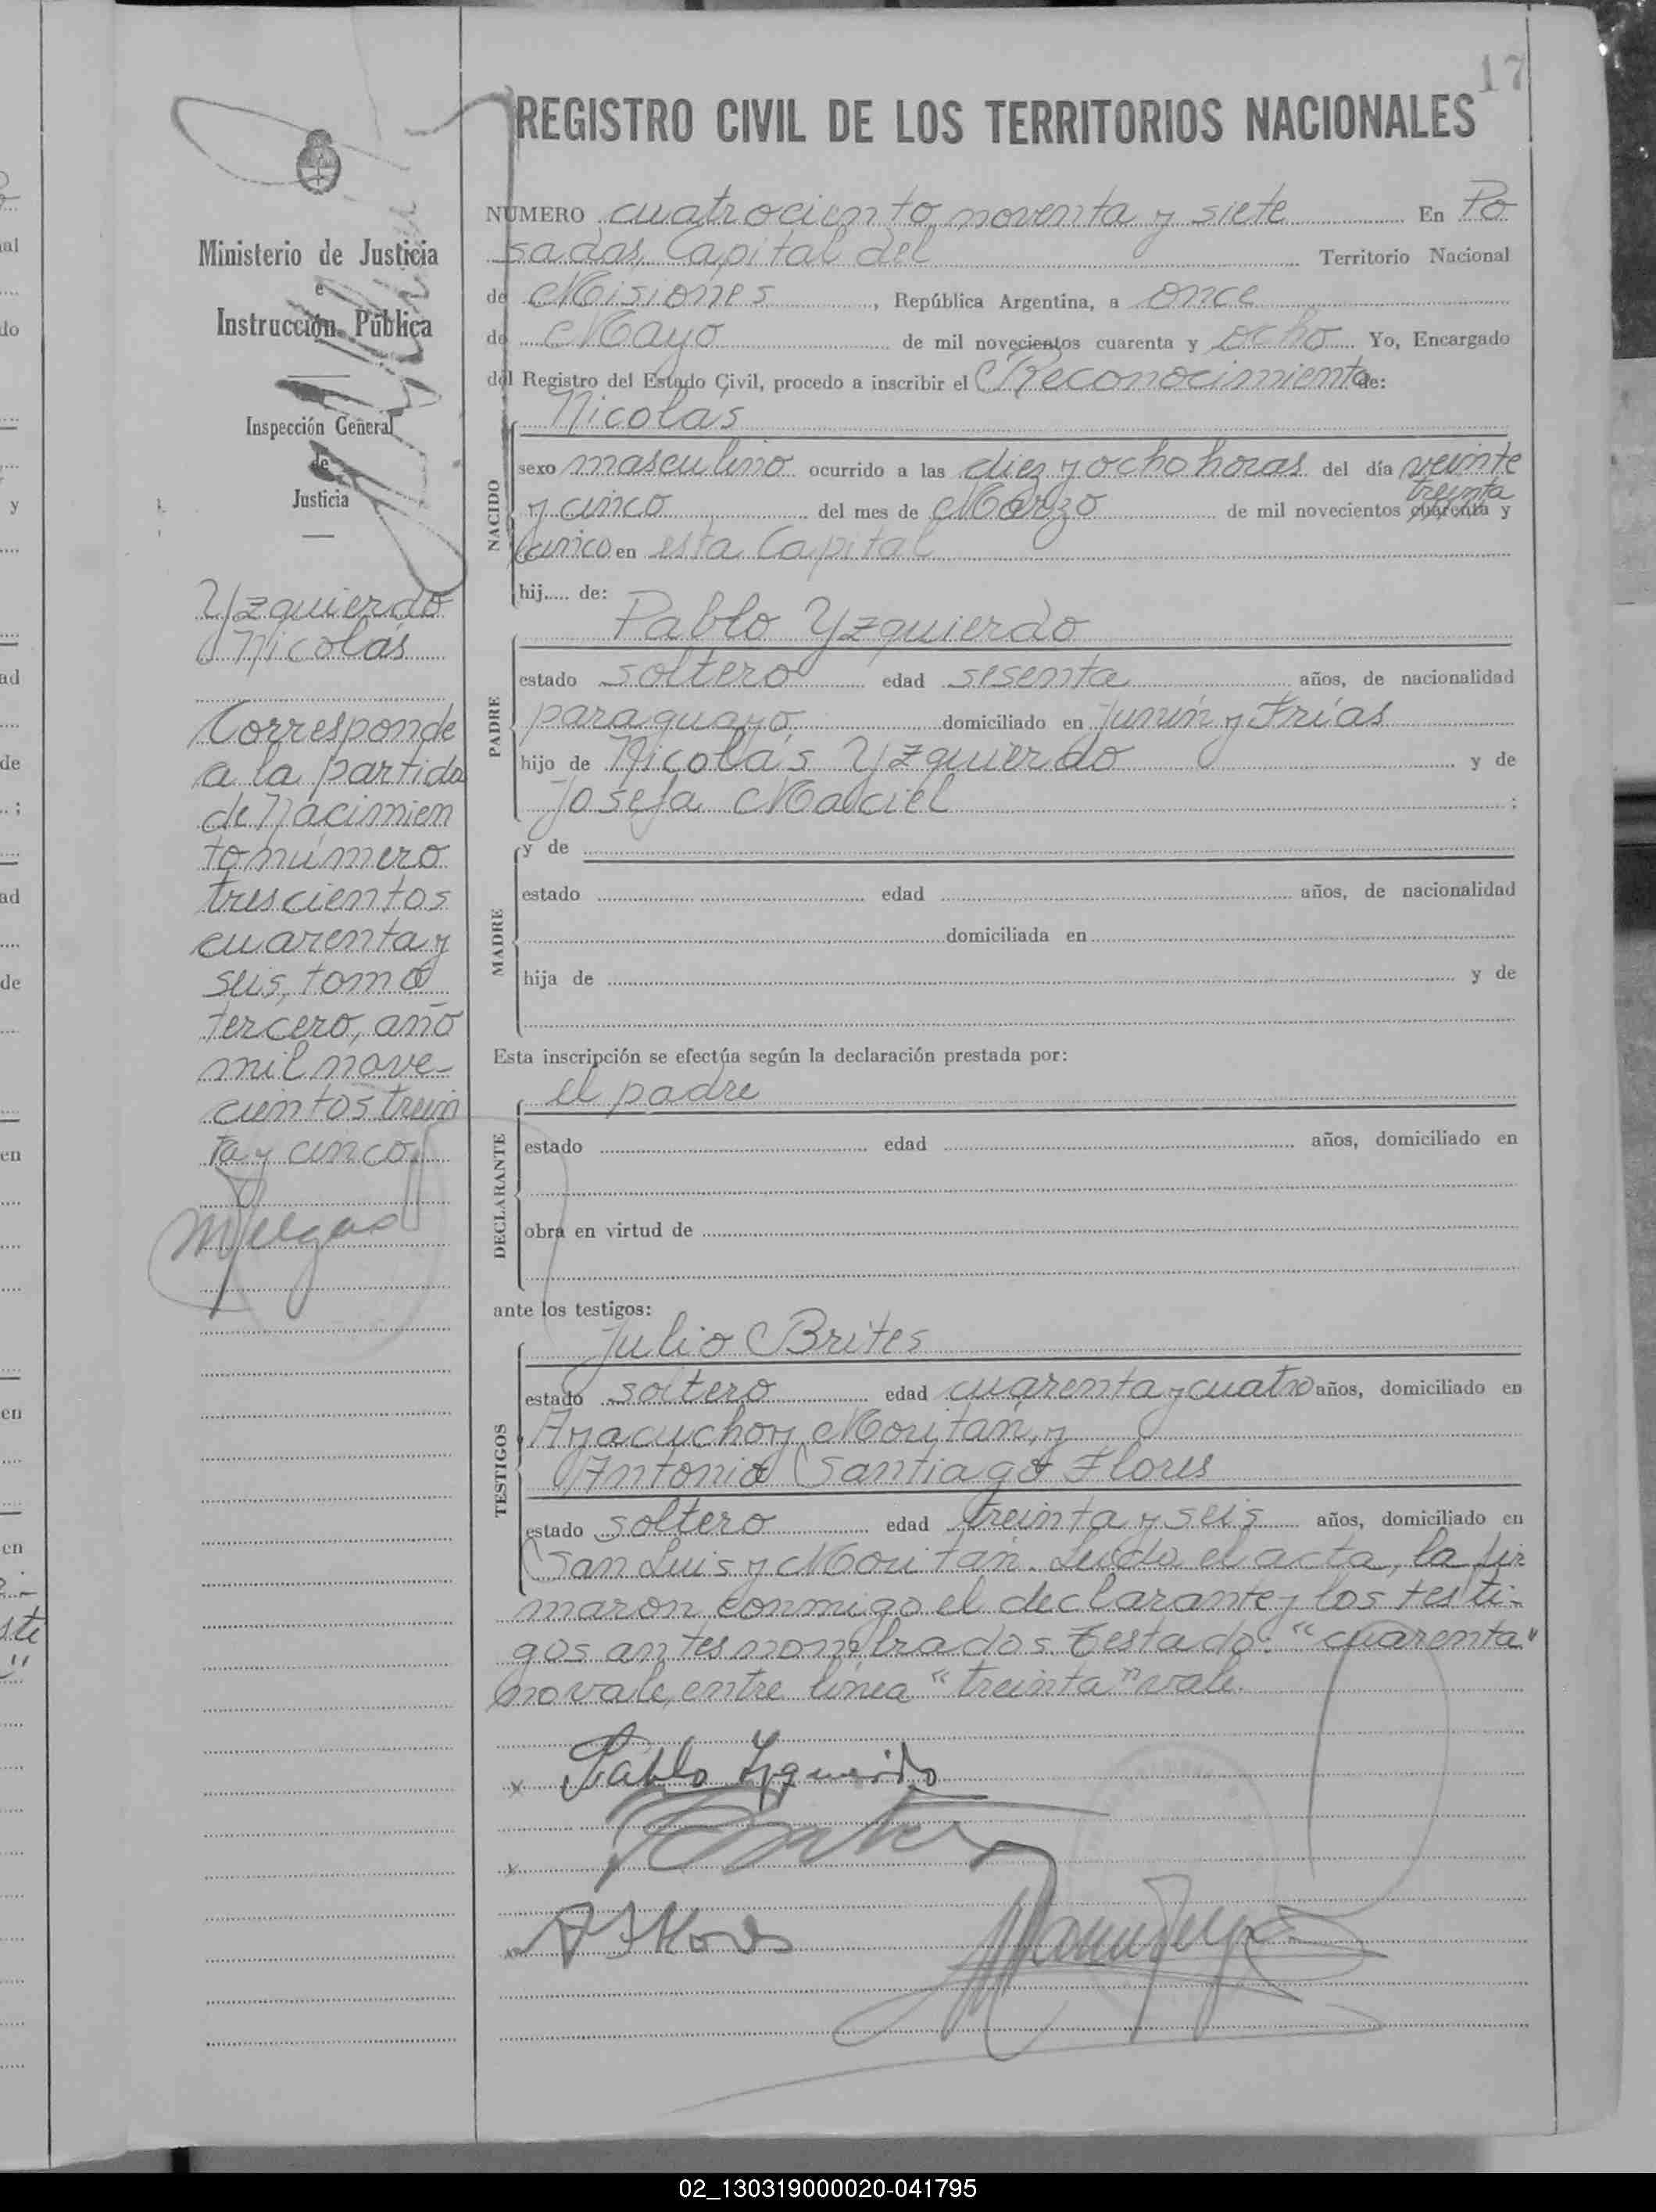 17
REGISTRO CIVIL DE LOS TERRITORIOS NACIONALES
Ministerio de Justicia
e
Instrucción Pública
Inspección General
de
Justicia
Yzquierdo
Nicolás
Corresponde
a la partida
de Nacimien
to número
trescientos
cuarenta y
seis, tomo
tercero, año
mil nove-
cientos trein
ta y cinco.
NUMERO cuatrociento noventa y siete En Po
sadas, Capital del Territorio Nacional
de Misiones, República Argentina, a once
de Mayo de mil novecientos cuarenta y ocho Yo, Encargado
del Registro del Estado Civil, procedo a inscribir el Reconocimiento de:
NACIDO
Nicolas
sexo masculino ocurrido a las diez y ocho horas del día veinte
y cinco del mes de Marzo de mil novecientos cuarenta treinta y
cinco en esta Capital
hij..... de:
PADRE
Pablo Yzquierdo
estado soltero edad sesenta años, de nacionalidad
paraguayo domiciliado en Junín y Frías
hijo de Nicolás Yzquierdo y de
Josefa Maciel ;
MADRE
y de
estado edad años, de nacionalidad
domiciliada en
hija de y de
Esta inscripción se efectúa según la declaración prestada por:
DECLARANTE
el padre
estado edad años, domiciliado en
obra en virtud de
ante los testigos:
TESTIGOS
Julio Brites
estado soltero edad cuarenta y cuatro años, domiciliado en
Ayacucho y Moritán, y
Antonio Santiago Flores
estado soltero edad treinta y seis años, domiciliado en
San Luis y Moritán. Leída el acta, la fir
maron conmigo el declarante y los testi-
gos antes nombrados. Testado: "cuarenta"
no vale, entre línea "treinta" vale.
Pablo Yzquierdo
A S Flores
02_130319000020-041795